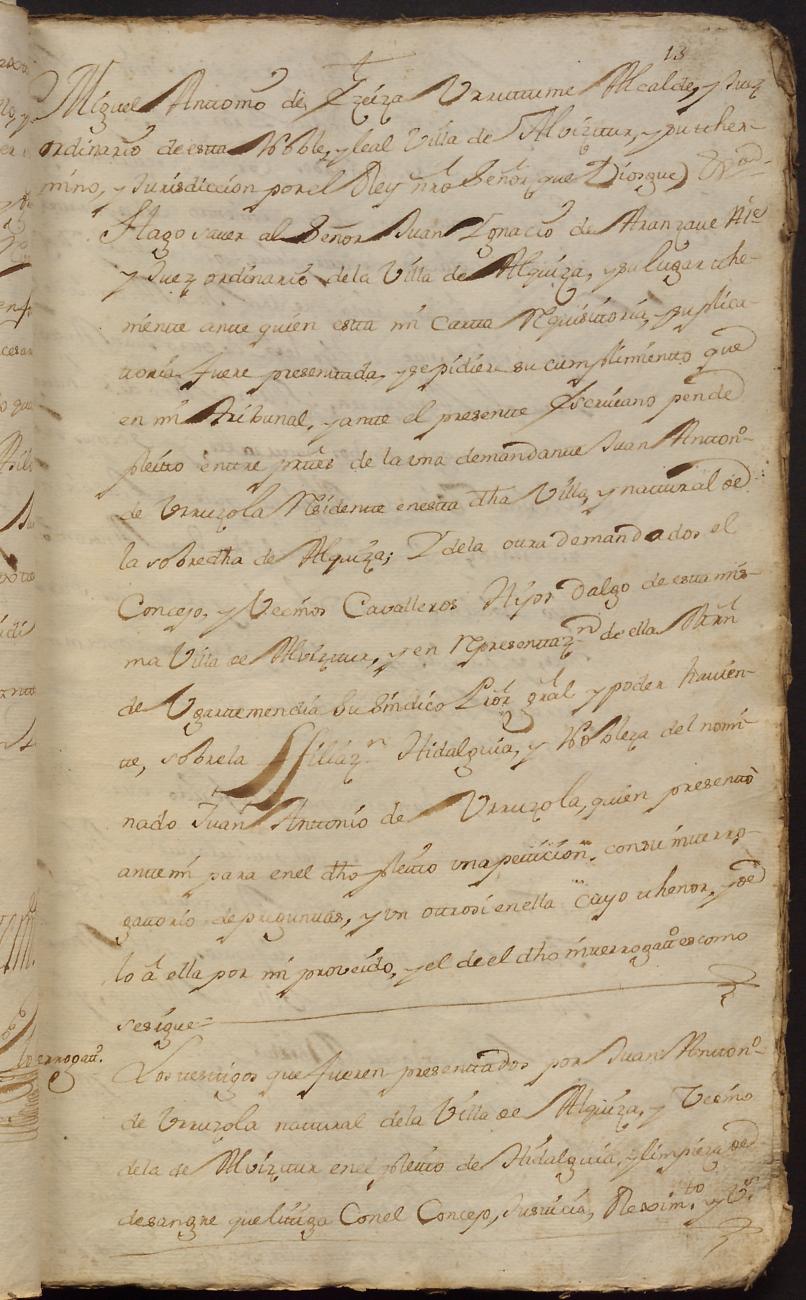 13
Miguel Antonio de Yzeiza Urrutume Alcalde, y Juez
ordinario de esta Noble, y leal Villa de Alviztur, y su ther-
mino, y Jurisdiccion por el Rey nrō Señor que Dios gue)
Hago saver al Señor Juan Ignacio de Aranzave Alc̄e
y Juez ordinario de la Villa de Alquiza, y su lugar the-
niente ante quien esta mi Carta Requisitoria, y suplica-
toria fuere presentada, y se pidiere su cumplimiento que
en mi Tribunal, y ante el presente Escrivano pende
pleito entre partes de la una demandante Juan Anton.º
de Urruzola Residente en esta dha Villa, y natural de
la sobredha de Alquiza; Y de la otra demandados el
Concejo, y Vecinos Cavalleros Hijos Dalgo de esta mis-
ma Villa de Alviztur, y en Representaz.n de ella
de Ugartemendia su Sindico Pr̄or gr̄al y poder havien-
te, sobre la ffiliaz.n Hidalguia, y Nobleza del nomi-
nado Juan Antonio de Urruzola, quien presentò
ante mi para en el dho pleito una peticion, con su interro-
gatorio de preguntas, y un otrosi en ella cuyo thenor, y de
lo â ella por mi proveido, y el de el dho interrogat.º es como
se sigue
Interrogat.º
Los testigos que fueren presentados por Juan Anton.º
de Urruzola natural de la Villa de Alquiza, y Vecino
de la de Alviztur en el pleito de Hidalguia, y limpieza de
de sangre que litiga Con el Concejo, Justicia, Rexim.to y V.s